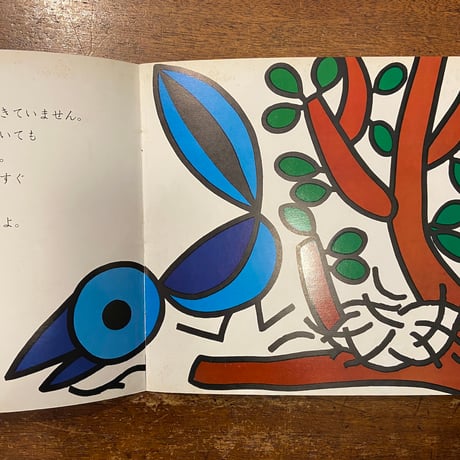 きていません。
いても
。
すぐ
よ。